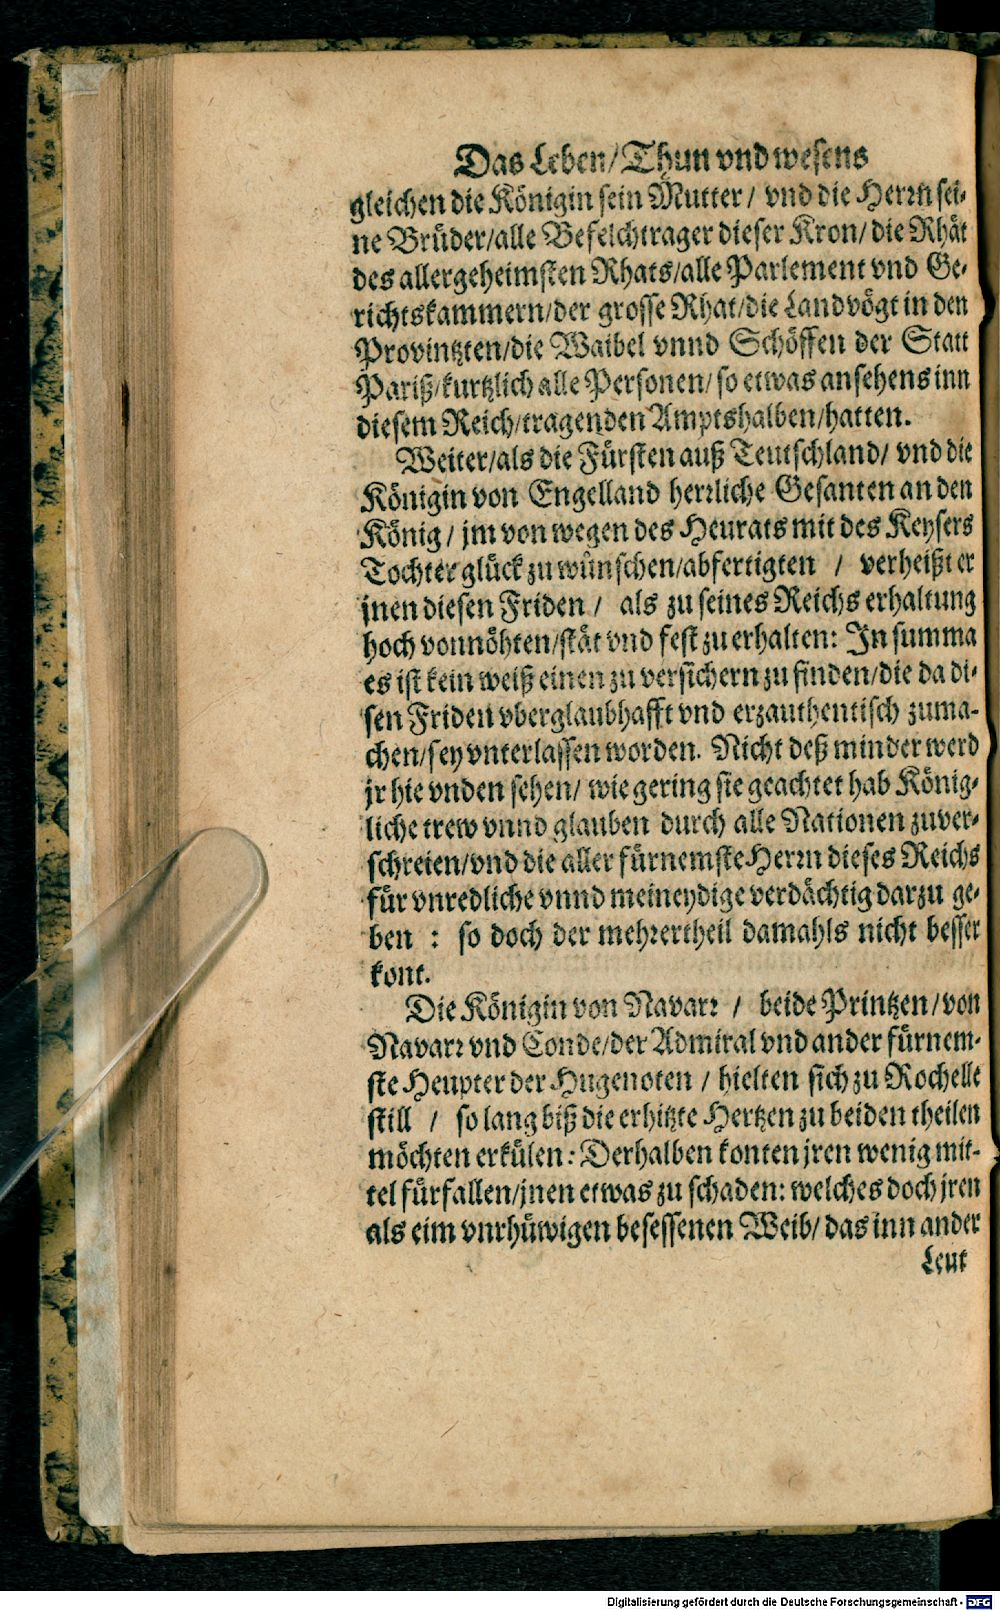 Das Leben/ Thun vnd wesens
gleichen die Königin sein Mutter/ vnd die Herrn sei-
ne Brüder/alle Befelchtrager dieser Kron/ die Rhät
des allergeheimsten Rhats/alle Parlement vnd Ge-
richtskammern/der grosse Rhat/die Landvögt in den
Provintzten/die Waibel vnnd Schöffen der Statt
Pariß/kurtzlich alle Personen/ so etwas ansehens inn
diesem Reich/tragenden Amptshalben/hatten.
Weiter/als die Fürsten auß Teutschland/ vnd die
Königin von Engelland herrliche Gesanten an den
König/ jm von wegen des Heurats mit des Keysers
Tochter glück zu wünschen/abfertigten / verheißt er
jnen diesen Friden/ als zu seines Reichs erhaltung
hoch vonnöhten/stät vnd fest zu erhalten: In summa
es ist kein weiß einen zu versichern zu finden/die da di-
sen Friden vberglaubhafft vnd erzauthentisch zuma-
chen/sey vnterlassen worden. Nicht deß minder werd
jr hie vnden sehen/ wie gering sie geachtet hab König-
liche trew vnnd glauben durch alle Nationen zuver-
schreien/vnd die aller fürnemste Herrn dieses Reichs
für vnredliche vnnd meineydige verdächtig darzu ge-
ben : so doch der mehrertheil damahls nicht besser
kont.
Die Königin von Navarr / beide Printzen/von
Navarr vnd Conde/der Admiral vnd ander fürnem-
ste Heupter der Hugenoten / hielten sich zu Rochelle
still / so lang biß die erhitzte Hertzen zu beiden theilen
möchten erkülen: Derhalben konten jren wenig mit-
tel fürfallen/jnen etwas zu schaden: welches doch jren
als eim vnrhüwigen besessenen Weib/ das inn ander
Leut
Digitalisierung gefördert durch die Deutsche Forschungsgemeinschaft - DFG